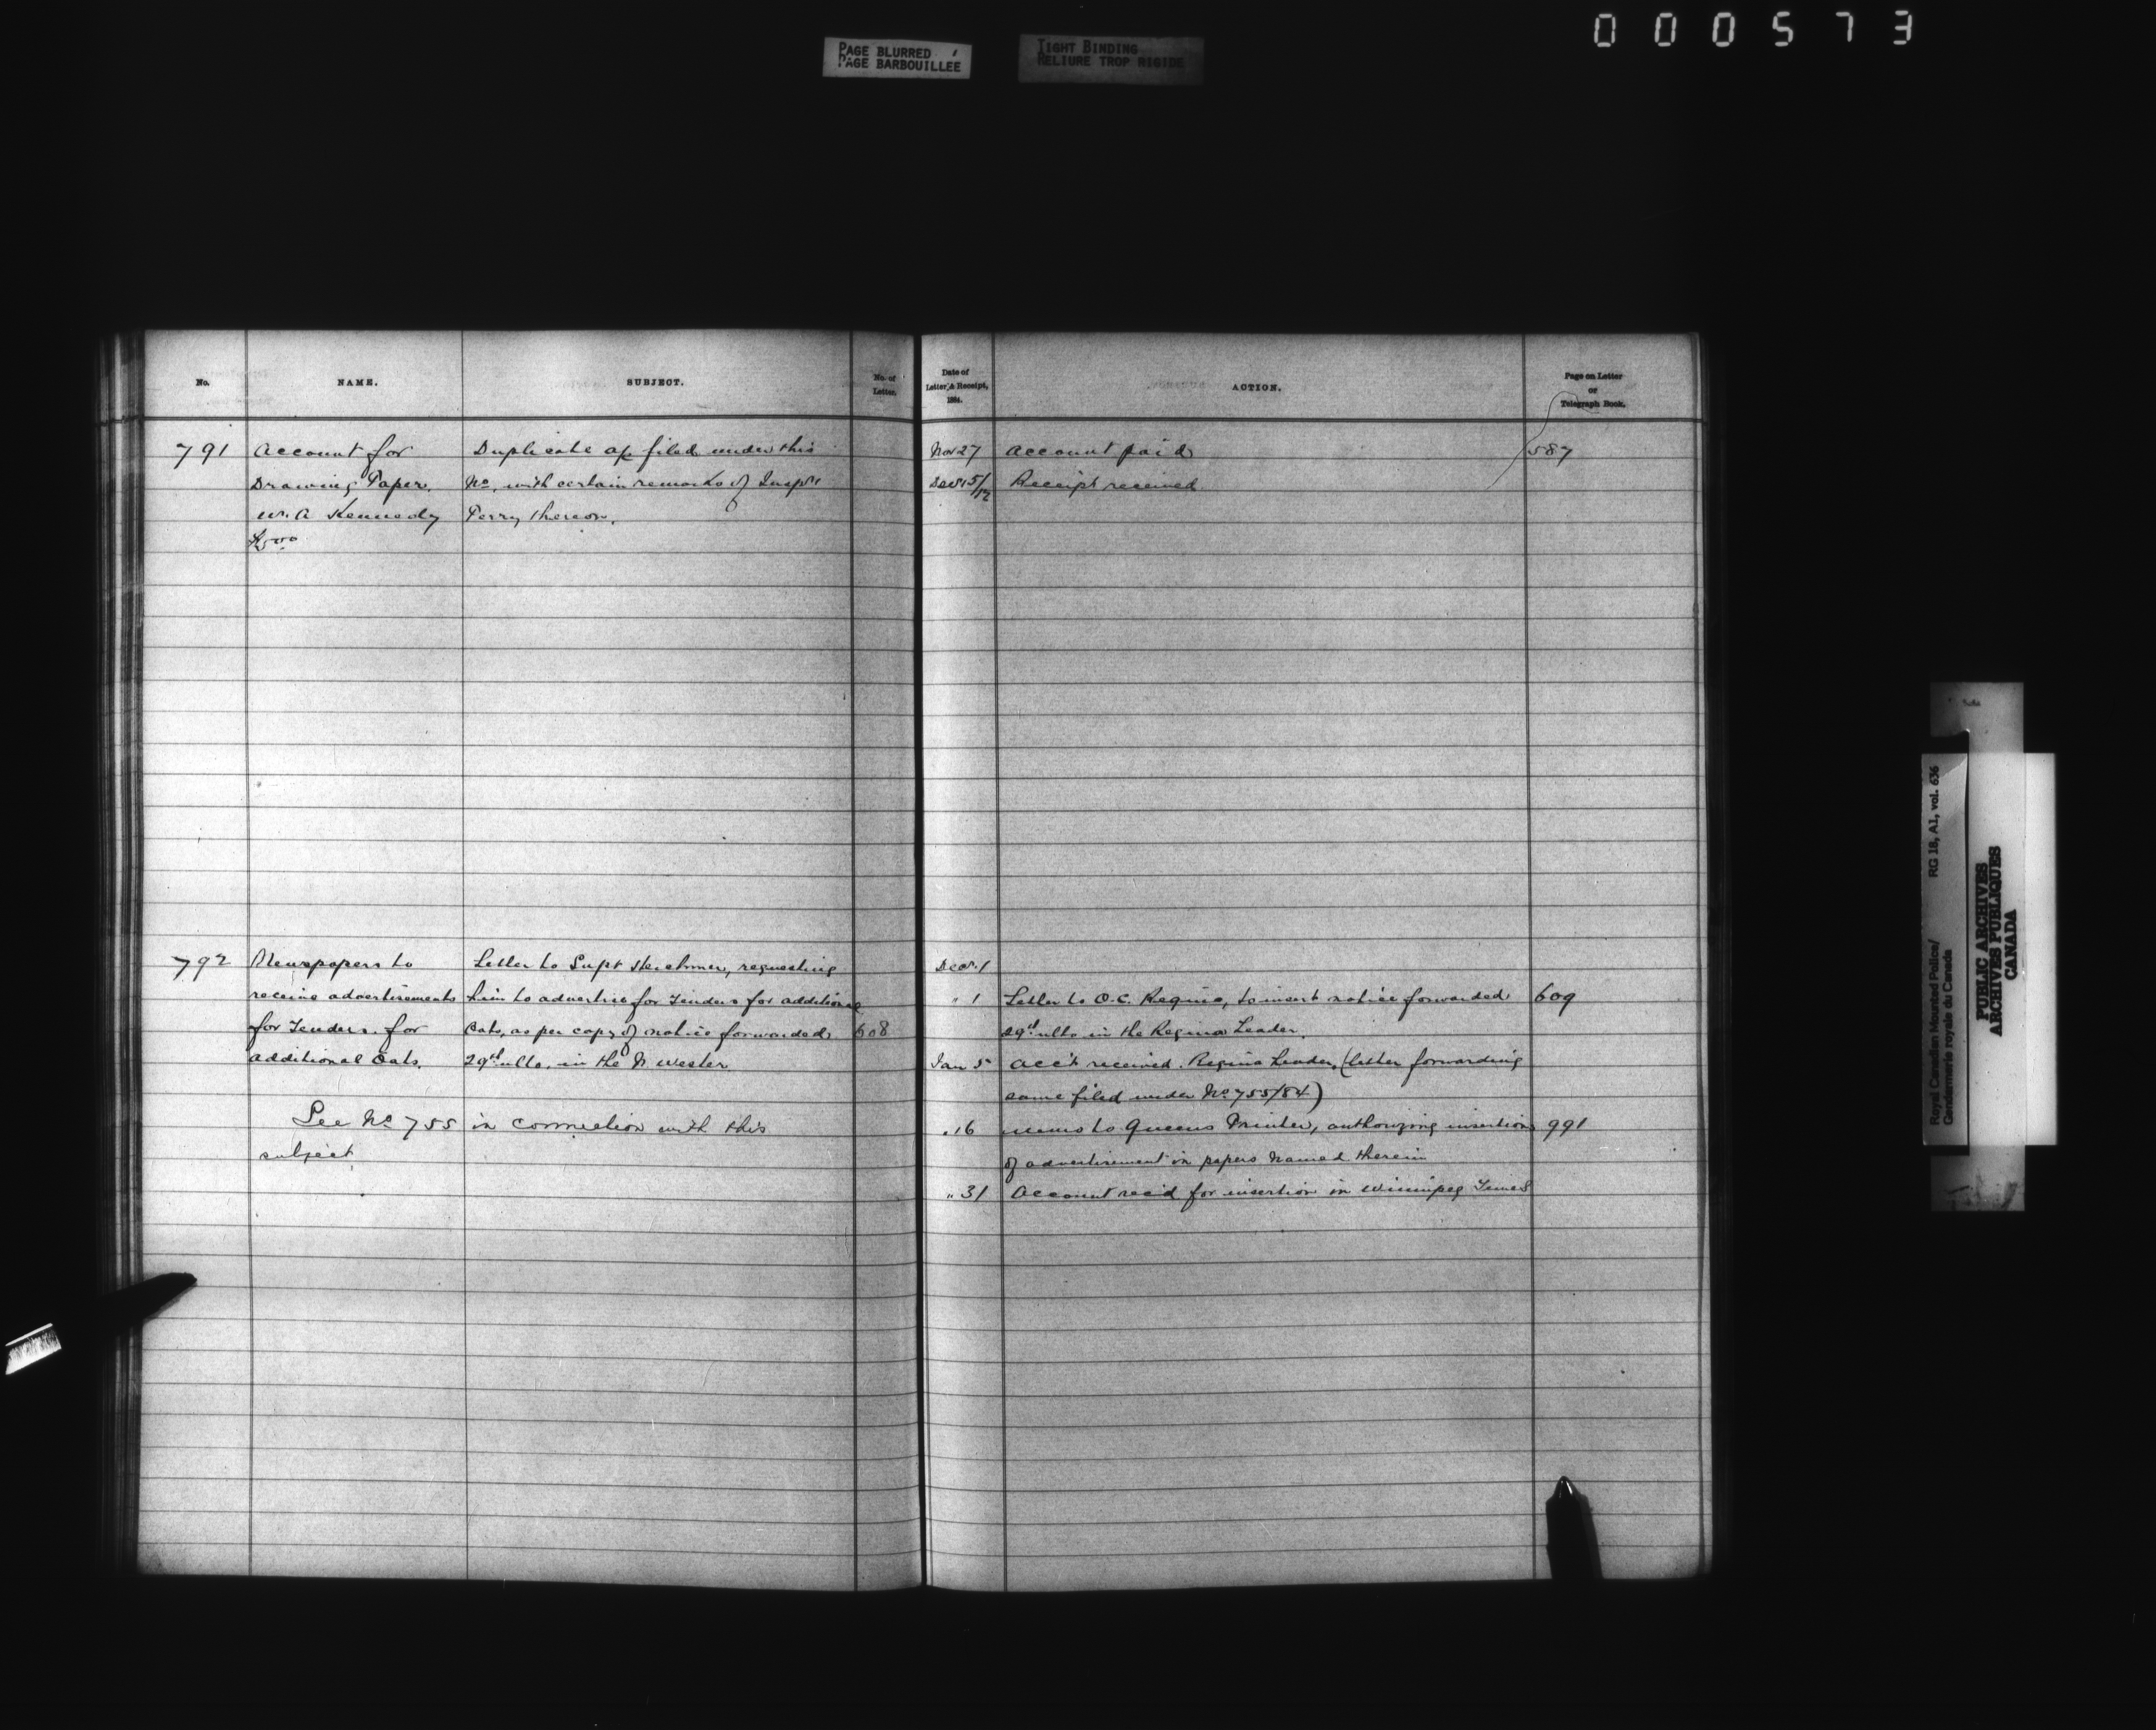 000573
PAGE BLURRED
PAGE BARBOUILLEE
TIGHT BINDING
RELIURE TROP RIGIDE
No.
NAME.
SUBJECT.
No. of
Letter.
791
Account for
Drawing Paper.
W. A Kennedy
Duplicate a/c filed under this
No. with certain remarks of Inspr
Perry thereon.
792
Newspapers to
receive advertisements
for Tenders for
additional Oats.
Letter to Supt Herchmer, requesting
him to advertise for Tenders for additional
Oats, as per copy of notice forwarded 608
29th ulto. in the N. Wester
See No 755 in connection with this
subject
Date of
Letter & Receipt,
1884.
ACTION.
Page on Letter
or
Telegraph Book.
Nov 27 Account paid 587
Dec 15/12 Receipt received
Decr. 1
" 1 Letter to O.C. Regina, to insert notice forwarded 609
29th ulto in the Regina Leader.
Jan 5 Acc't received. Regina Leader, (letter forwarding
same filed under No 755/84)
" 16 Memo to Queens Printer, authorizing insertion 991
of advertisement in papers named therein
" 31 Account rec'd for insertion in Winnipeg Times
Royal Canadian Mounted Police/
Gendarmerie royale du Canada
RG 18, A1, vol. 636
PUBLIC ARCHIVES
ARCHIVES PUBLIQUES
CANADA